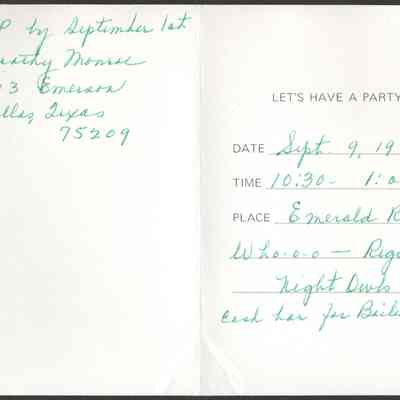 P by September 1st
rothy Monroe
3 Emerson
llas, Texas
75209
LET'S HAVE A PARTY
DATE Sept. 9, 19
TIME 10:30 - 1:0
PLACE Emerald R
Who-o-o — Rig
Night Owls
Cash bar for Baile